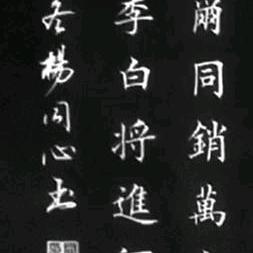 爾同銷萬
李白將進
冬楊同心書